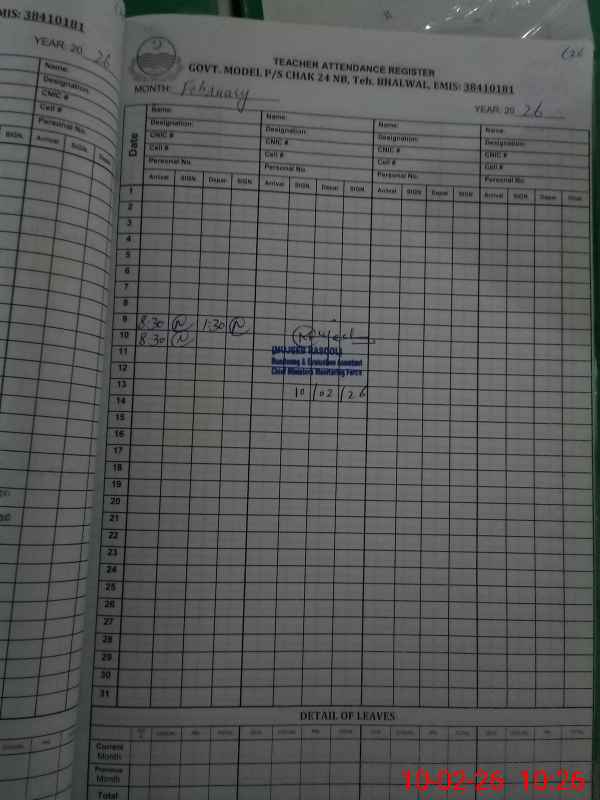 EMIS: 38410181
YEAR: 20 26
Name:
Designation:
CNIC #
Cell #
Personal No.
SIGN. Arrival SIGN. Depar
TEACHER ATTENDANCE REGISTER
GOVT. MODEL P/S CHAK 24 NB, Teh. BHALWAL, EMIS: 38410181
MONTH: February
YEAR: 20 26
Date
Name: Name: Name: Name:
Designation: Designation: Designation: Designation:
CNIC # CNIC # CNIC # CNIC #
Cell # Cell # Cell # Cell #
Personal No. Personal No. Personal No. Personal No.
Arrival SIGN. Depar SIGN. Arrival SIGN. Depar SIGN. Arrival SIGN. Depar SIGN. Arrival SIGN. Depar SIGN.
1
2
3
4
5
6
7
8
9 8:30 N 1:30 N
10 8:30 N
11 (MUJEEB RASOOL)
12 Monitoring & Evaluation Assistant
Chief Minister's Monitoring Force
13
14 10/02/26
15
16
17
18
19
20
21
22
23
24
25
26
27
28
29
30
31
DETAIL OF LEAVES
Current Month
Previous Month
Total
10-02-26 10:26